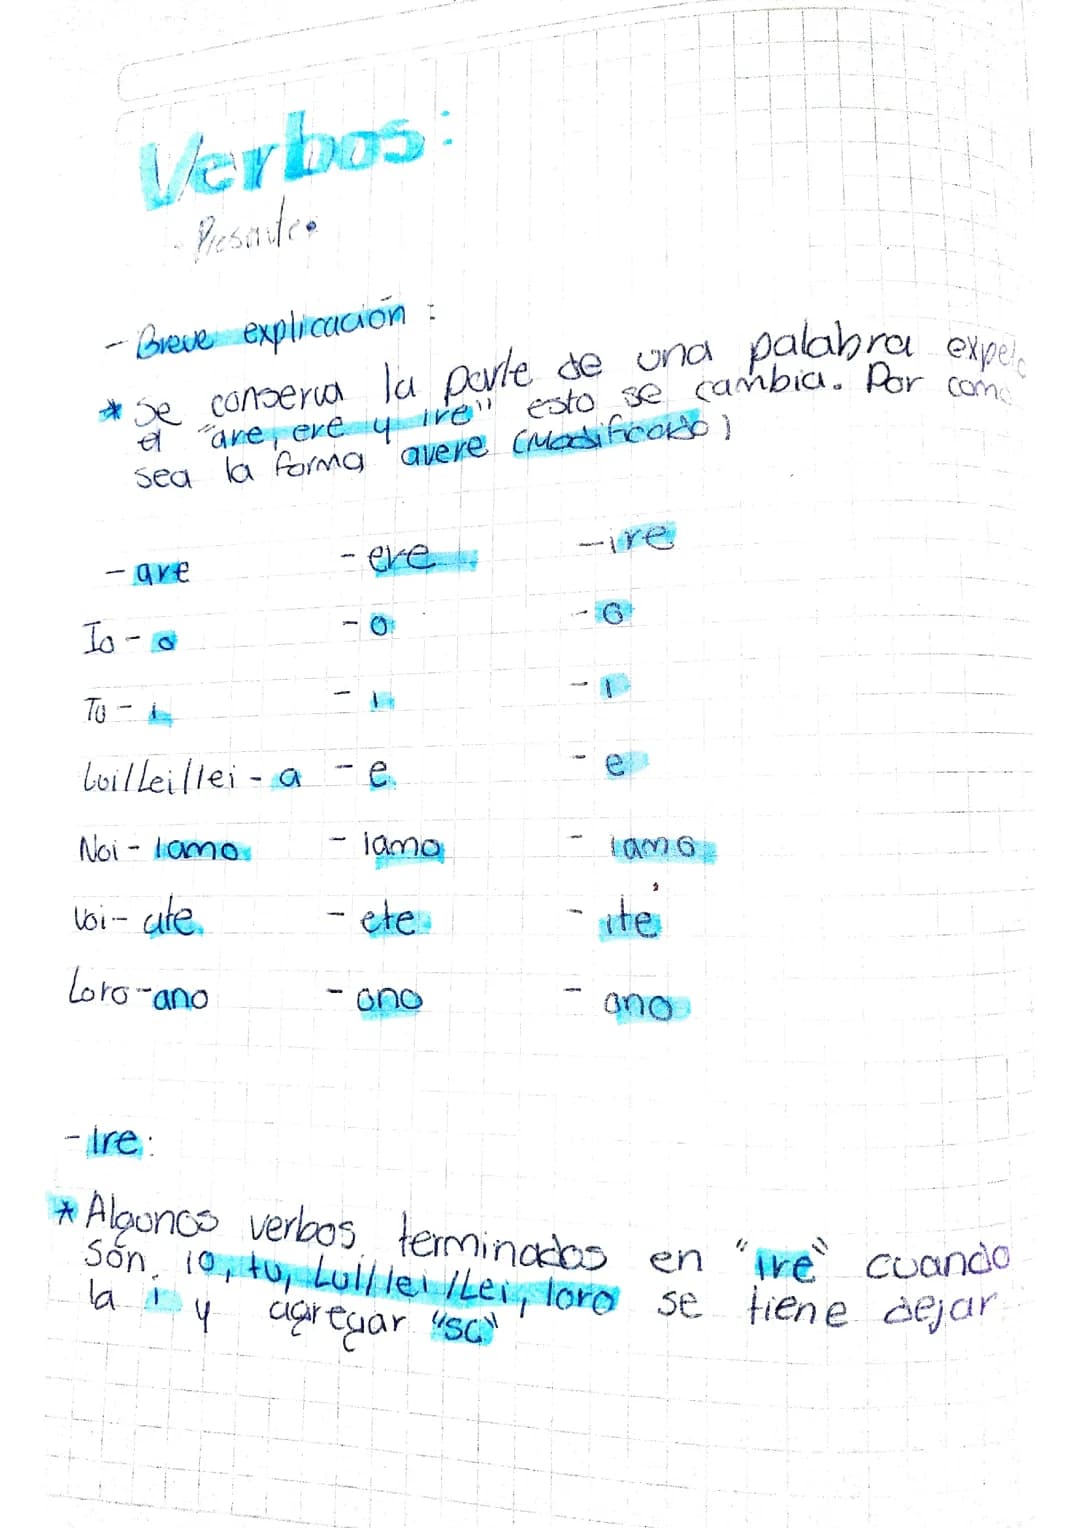 Verbos:
- Presente.
- Breve explicación :
* Se conserva la parte de una palabra
el "are, ere y ire" esto se cambia. Por como
sea la forma avere (Modificado)
- are - ere - ire
Io - o - o - o
Tu - i - i - i
Lui/Lei/lei - a - e - e
Noi - iamo - iamo - iamo
Voi - ate - ete - ite
Loro - ano - ono - ono
- Ire:
* Algunos verbos terminados en "ire" cuando
són io, tu, Lui/lei/Lei, loro se tiene dejar
la i y agregar "sc"